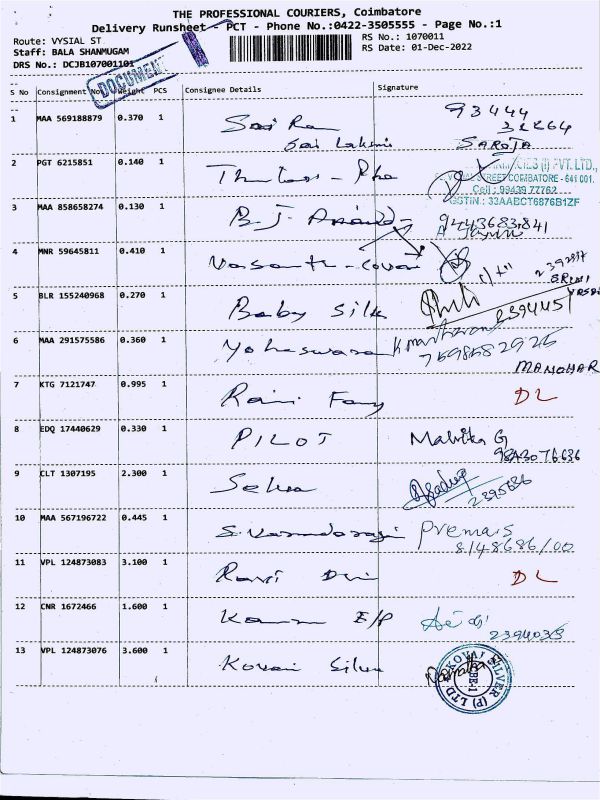 THE PROFESSIONAL COURIERS, Coimbatore
Delivery Runsheet - PCT - Phone No.:0422-3505555 - Page No.:1
Route: VYSIAL ST
RS No.: 1070011
Staff: BALA SHANMUGAM
RS Date: 01-Dec-2022
DRS No.: DCJB107001101
DOCUMENT
S No Consignment No Weight PCS Consignee Details Signature
1 MAA 569188879 0.370 1 Sai Ram 93444
Sai Lakmi 32264
SAROJA
2 PGT 6215851 0.140 1
PVT. LTD.,
STREET COIMBATORE - 641 001.
Cell : 99439 77762
GSTIN : 33AABCT6876B1ZF
3 MAA 858658274 0.130 1 B. J. Anand 9443683841
4 MNR 59645811 0.410 1 Vasanth - Covai
SRINI
5 BLR 155240968 0.270 1 Baby Silk
239445
6 MAA 291575586 0.360 1 Yoheswaran
7598582926
MANOHAR
7 KTG 7121747 0.995 1 Rani Fancy DL
8 EDQ 17440629 0.330 1 PILOT Malvika G
9843076636
9 CLT 1307195 2.300 1 Selva
2395636
10 MAA 567196722 0.445 1 S. Varadaraji Prema.S
8148686100
11 VPL 124873083 3.100 1 Ravi DL
12 CNR 1672466 1.600 1 E/P
2394033
13 VPL 124873076 3.600 1 Kovai Silver
KOVAI SILVER (P) LTD
CBE-1